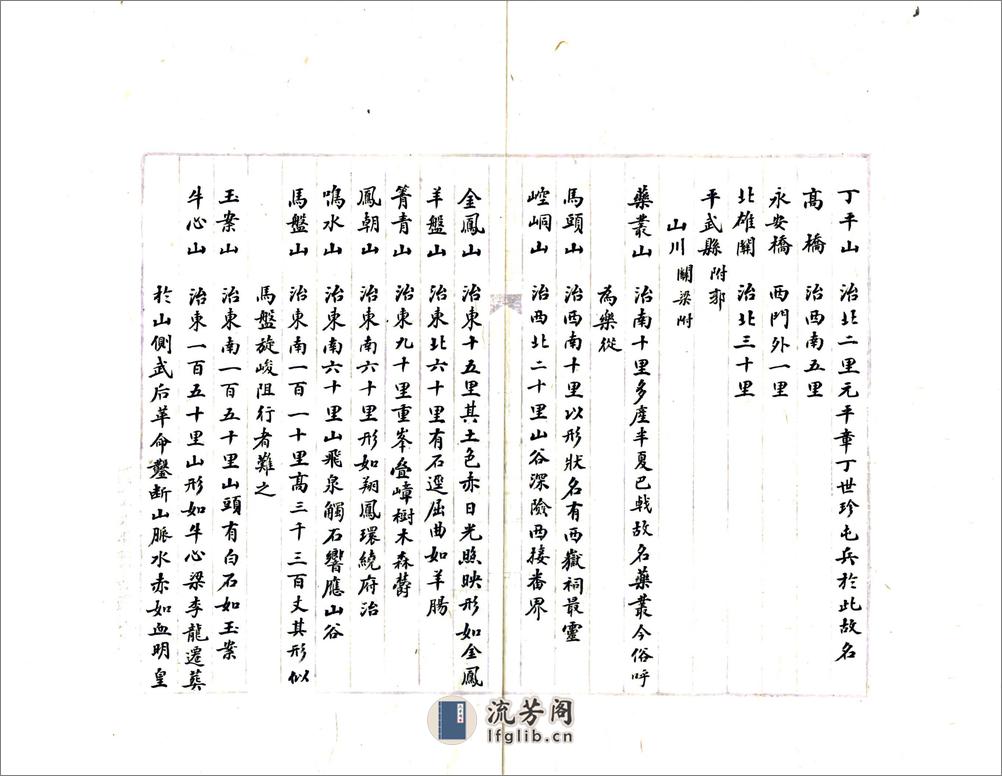 丁平山　治北二里元平章丁世珍屯兵於此故名
高　橋　治西南五里
永安橋　西門外一里
北雄關　治北三十里
平武縣附郭
山川關梁附
藥叢山　治南十里多產半夏巴戟故名藥叢今俗呼
為樂從
馬頭山　治西南十里以形狀名有西嶽祠最靈
崆峒山　治西北二十里山谷深險西接番界
金鳳山　治東十五里其土色赤日光照映形如金鳳
羊盤山　治東北六十里有石逕屈曲如羊腸
箐青山　治東九十里重峯疊嶂樹木森欝
鳳朝山　治東南六十里形如翔鳳環繞府治
鳴水山　治東南六十里山飛泉觸石響應山谷
馬盤山　治東南一百一十里高三千三百丈其形似
馬盤旋峻阻行者難之
玉案山　治東南一百五十里山頭有白石如玉案
牛心山　治東一百五十里山形如牛心梁李龍遷葬
於山側武后革命鑿斷山脈水赤如血明皇
流芳阁
lfglib.cn